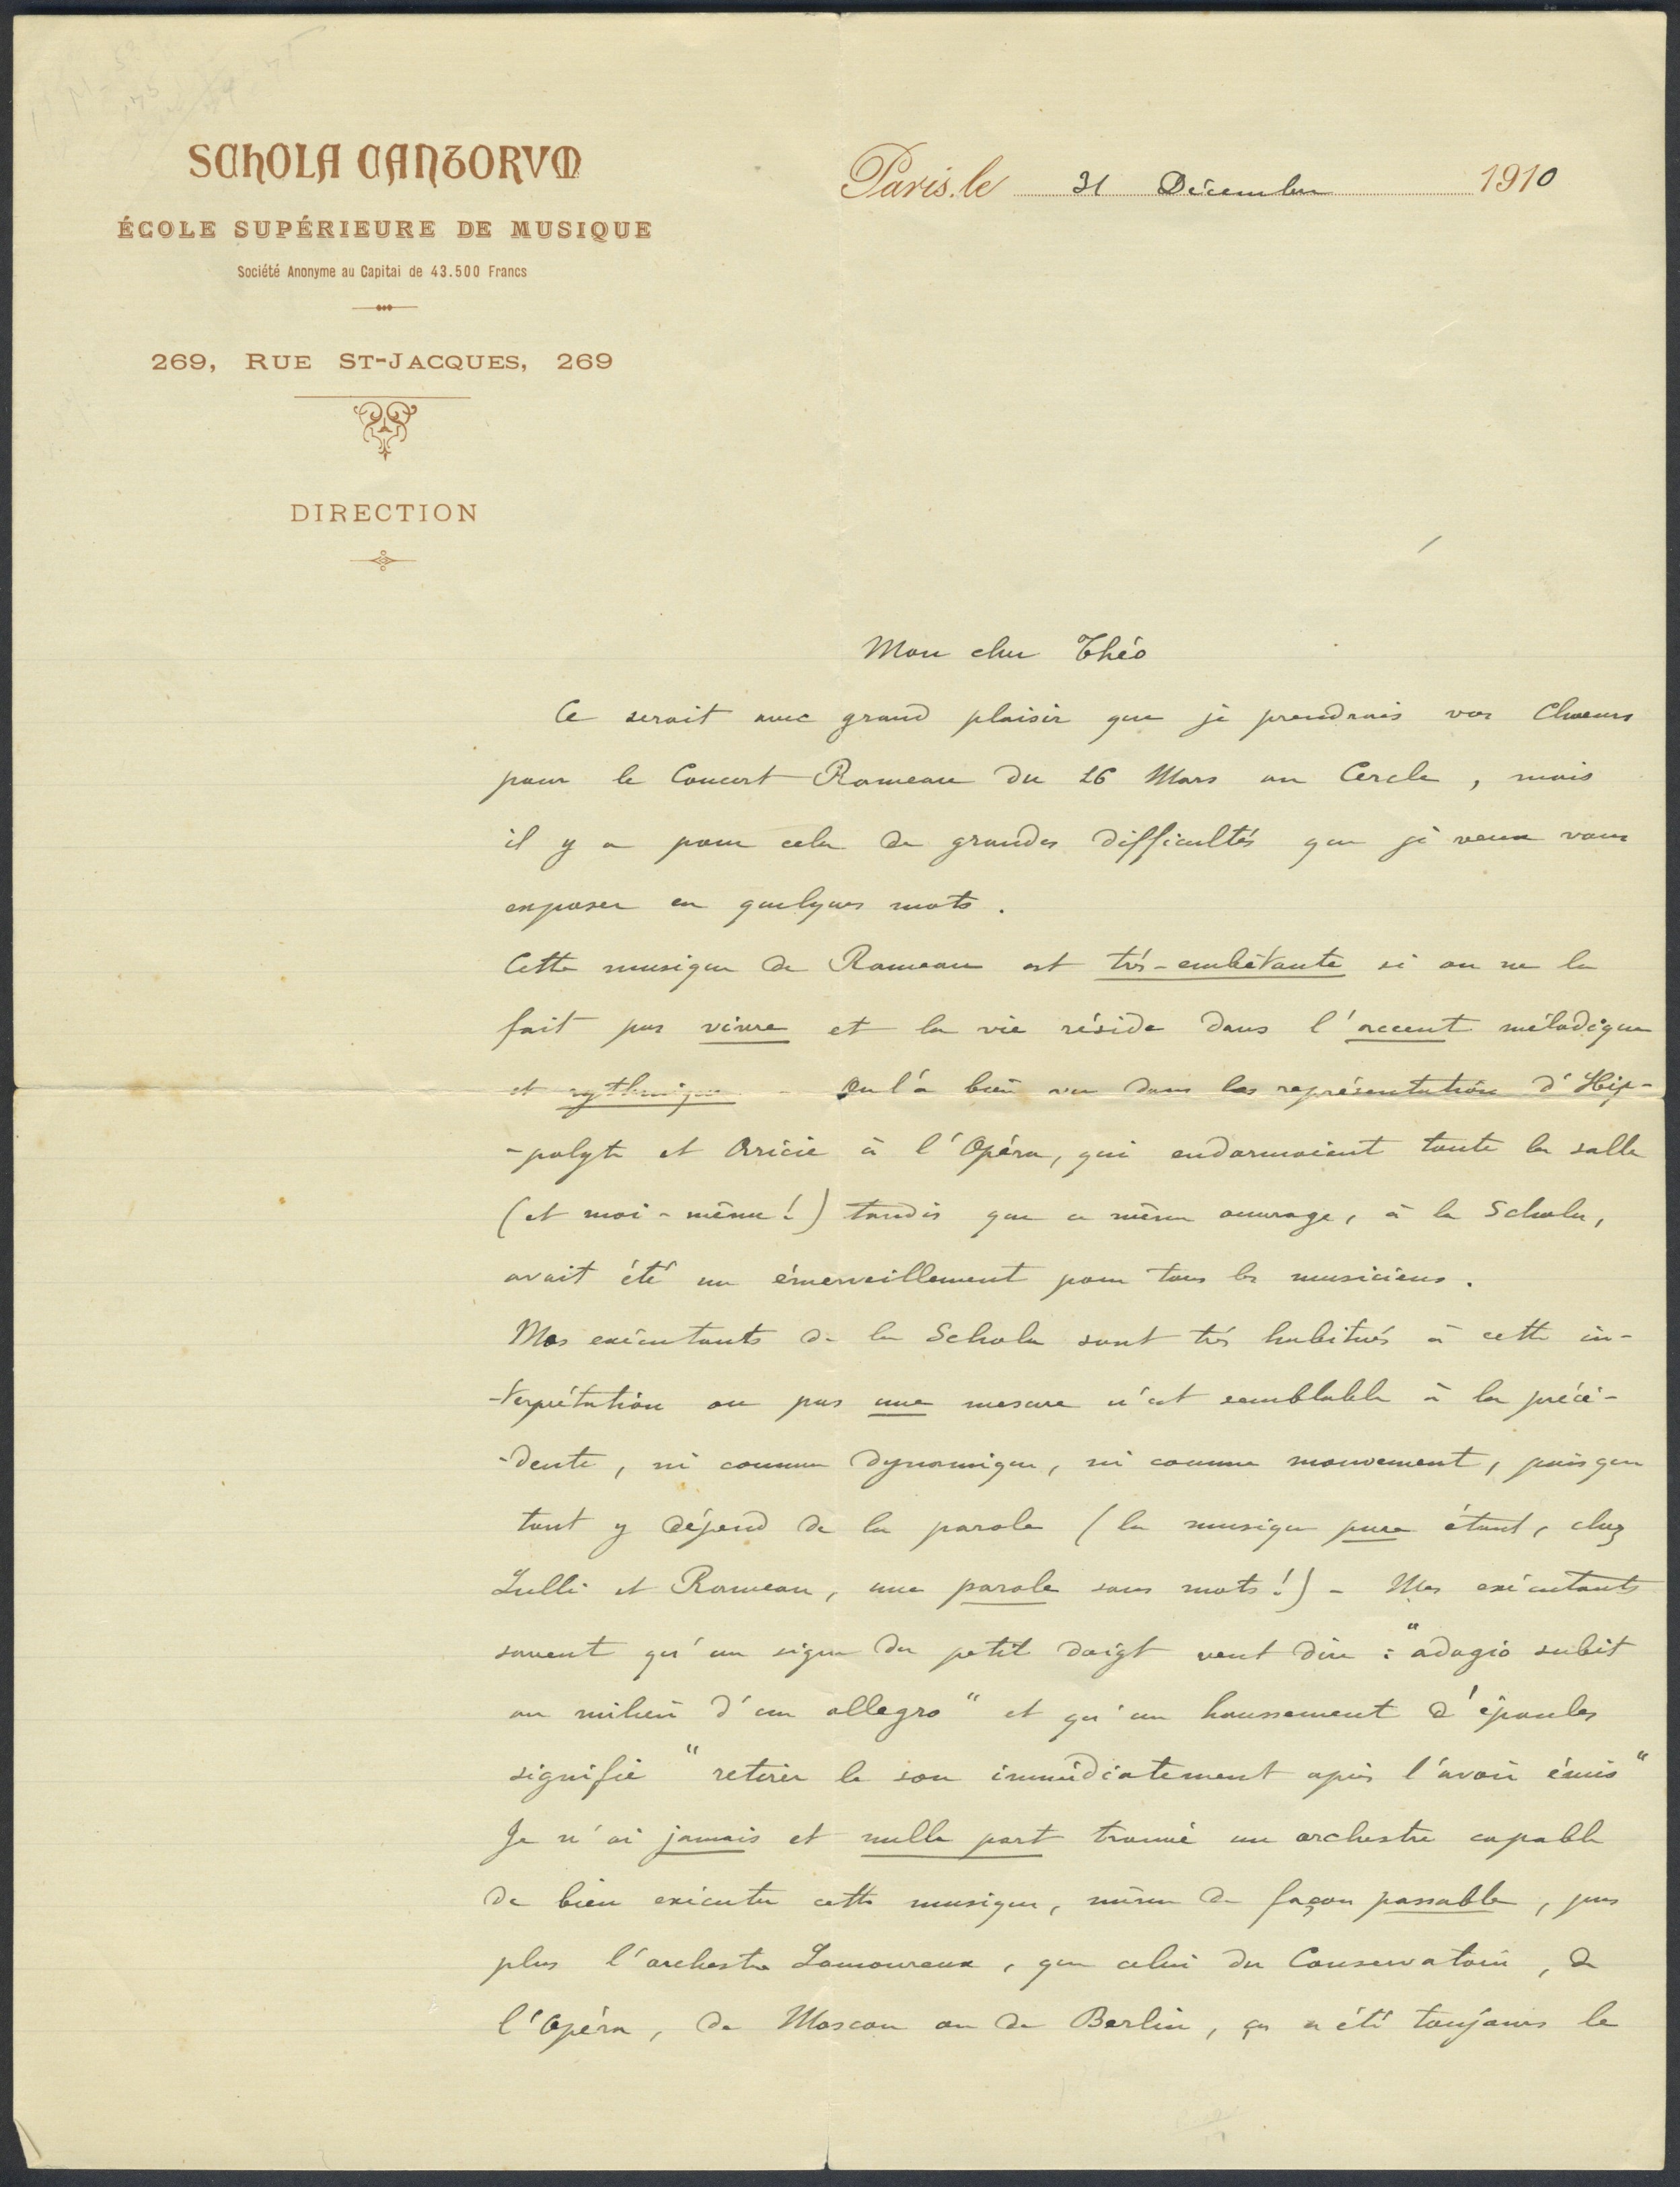 SCHOLA CANTORVM
ÉCOLE SUPÉRIEURE DE MUSIQUE
Société Anonyme au Capital de 43.500 Francs
269, RUE ST-JACQUES, 269
DIRECTION
Paris, le 31 Décembre 1910
Mon cher Théo
Ce serait avec grand plaisir que je prendrais vos Choeurs
pour le Concert Rameau du 26 Mars au Cercle, mais
il y a pour cela de grandes difficultés que je veux vous
exposer en quelques mots.
Cette musique de Rameau est très-embêtante si on ne la
fait pas vivre et la vie réside dans l'accent mélodique
et rythmique - On l'a bien vu dans les représentation d'Hip-
-polyte et Aricie à l'Opéra, qui endormaient toute la salle
(et moi-même!) tandis que ce même ouvrage, à la Schola,
avait été un émerveillement pour tous les musiciens.
Mes exécutants de la Schola sont très habitués à cette in-
-terprétation ou pas une mesure n'est semblable à la précé-
-dente, ni comme dynamique, ni comme mouvement, puisque
tout y dépend de la parole (la musique pure étant, chez
Lulli et Rameau, une parole sans mots!) - Mes exécutants
savent qu'un signe du petit doigt veut dire : "adagio subit
au milieu d'un allegro" et qu'un haussement d'épaules
signifie "retirer le son immédiatement après l'avoir émis"
Je n'ai jamais et nulle part trouvé un orchestre capable
de bien exécuter cette musique, même de façon passable, pas
plus l'orchestre Lamoureux, que celui du Conservatoire, de
l'Opéra, de Moscou ou de Berlin, ça a été toujours le